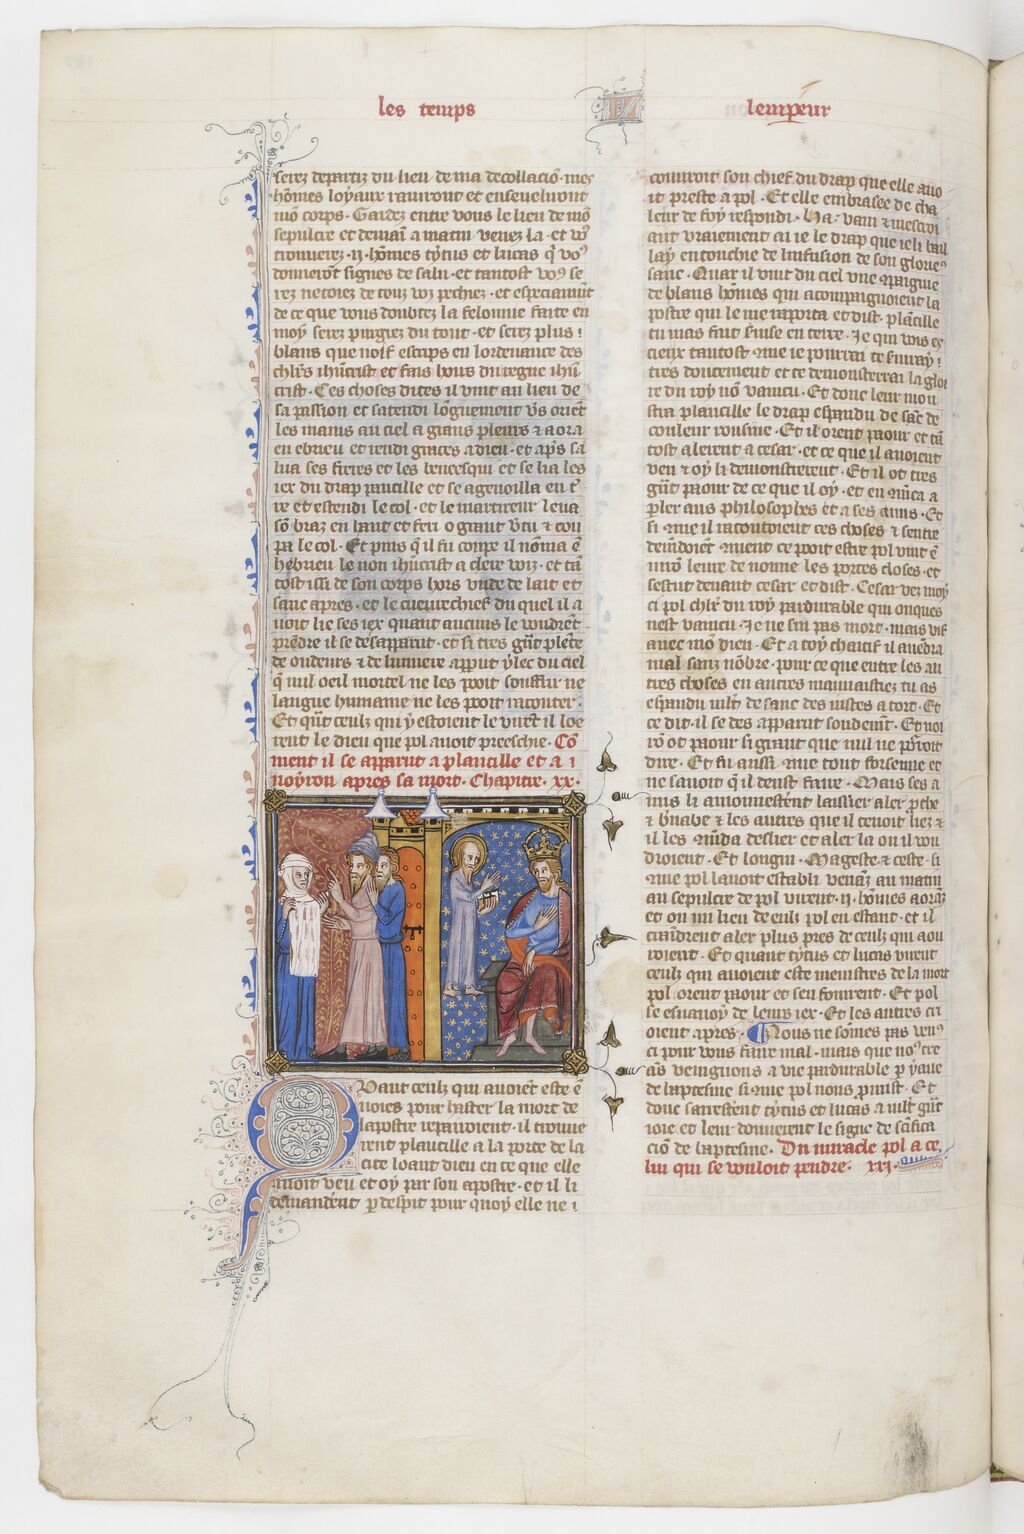 les temps
lempeur
serez departiz du lieu de ma decollacio͂ · mes
ho͂mes loyaux rauront et enseueliront
mo͂ corps · Gardez entre vous le lieu de mo͂
sepulcre et demai͂ a matin venez la · et vo9
trouuerez · ij · ho͂mes tytus et lucas q̃ vo9
donneront signes de salu · et tantost vo9 se
rez netoiez de touz voz pechiez · et especiaum̃t
de ce que vous doubtez la felonnie faite en
moy serez purgiez du tout · et serez plus
blans que noif escrips en lordenance des
chl̃rs ih̃ucrist et fais hoirs du regne ih̃u
crist · Ces choses dites il vint au lieu de
sa passion et satendi lo͂guement v̾s orie͂t
les mains au ciel a grans pleurs ⁊ aora
en ebrieu et rendi graces a dieu · et ap̾s sa
lua ses freres et les et se lia les
iex du drap plancille et se agenoilla en t̾
re et estendi le col · et le martireur leua
so͂ braz en haut et feri o grant v̾tu ⁊ cou
pa le col · Et puis q̃ il fu coupe il no͂ma e͂
hebrieu le non ih̃ucrist a clere voiz · et ta͂
tost issi de son corps hors vnde de lait et
sanc apres · et le cueurechief du quel il a
uoit lie ses iex quant aucuns le voudre͂t
pre͂dre il se desapparut · et si tres gu͂t ple͂te
de oudeurs ⁊ de lumiere apparut ylec du ciel
q̃ nul oeil mortel ne les pooit souffrir ne
langue humaine ne les pooit raconter ·
Et qũt ceulx qui y estoient le virẽt il loe
rent le dieu que pol auoit preeschie · Co͂
ment il se apparut a plancille et a
noyron apres sa mort · Chapitre · xx ·
Quant ceulz qui auoie͂t este e͂
uoies pour haster la mort de
lapostre repairoient · il trouue
rent plancille a la porte de la
cite loant dieu en ce que elle
auoit veu et oy par son apostre · et il li
demandere͂t p despit pour quoy elle ne
couuroit son chief du drap que elle auo
it preste a pol · Et elle embrasee de cha
leur de foy respondi · Ha · vain ⁊ mescroi
ant vraiement ai ie le drap que ie li bail
lay entouchie de linfusion de son glorie9
sanc · Quar il vint du ciel vne
de blans ho͂mes qui acompaignoient la
postre qui le me raporta et dist · plancille
tu mas fait en terre · Je qui vois es
cieux tantost que ie pourrai te
tres doucement et te demonsterrai la gloi
re du roy no͂ vaincu · Et donc leur mon
stra plancille le drap espandu de sac̃ de
couleur rousine · Et il orent paour et ta͂
tost alerent a cesar · et ce que il auoient
veu ⁊ oy li demonstrerent · Et il ot tres
gũt paour de ce que il oy · et en a
p̾ler aus philosophes et a ses amis · Et
si que il racontoient ces choses ⁊ sentre
dema͂doie͂t ce pooit estre pol vint e͂
uiro͂ leure de nonne les portes closes · et
sestut deuant cesar et dist · Cesar vez moy
ci pol chlr̃ du roy pardurable qui onques
nest vaincu · Je ne sui pas mort · mais vif
auec mo͂ dieu · Et a toy chaitif il aue͂dra
mal sanz no͂bre · pour ce que entre les au
tres choses en autres mauuaistiez tu as
espandu mlt̃ de sanc des iustes a tort · Et
ce dit · il se des apparut soudeme͂t · Et noi
ro͂ ot paour si grant que nul ne porroit
dire · Et fu aussi que tout forsenne et
ne sauoit q̃ il deust faire · Mais ses a
mis li amonneste͂rent laissier aler p̾che
⁊ b̾nabe ⁊ les autres que il tenoit liez ⁊
il les ma͂da deslier et aler la ou il vou
droient · Et longin · Mageste ⁊ ceste · si
que pol lauoit establi vena͂z au matin
au sepulcre de pol virent · ij · ho͂mes aora͂z
et ou mi lieu de eulz pol en estant · et il
craindrent aler plus pres de ceulz qui aou
roient · Et quant tytus et lucas virent
ceulz qui auoient este menistres de la mort
pol orent paour et sen fouirent · Et pol
se esuanoy de leurs iex · Et les autres cri
oient apres · Nous ne so͂mes pas ven9
ci pour vous faire mal · mais que no9 cre
a͂s veingnons a vie pardurable p yaue
de baptesme si que pol nous p̾mist · Et
donc sareste͂rent tytus et lucas a mlt̃ gu͂t
ioie et leur donnerent le signe de
cio͂ de baptesme · Du miracle pol a ce
lui qui se vouloit pendre · xxi ·